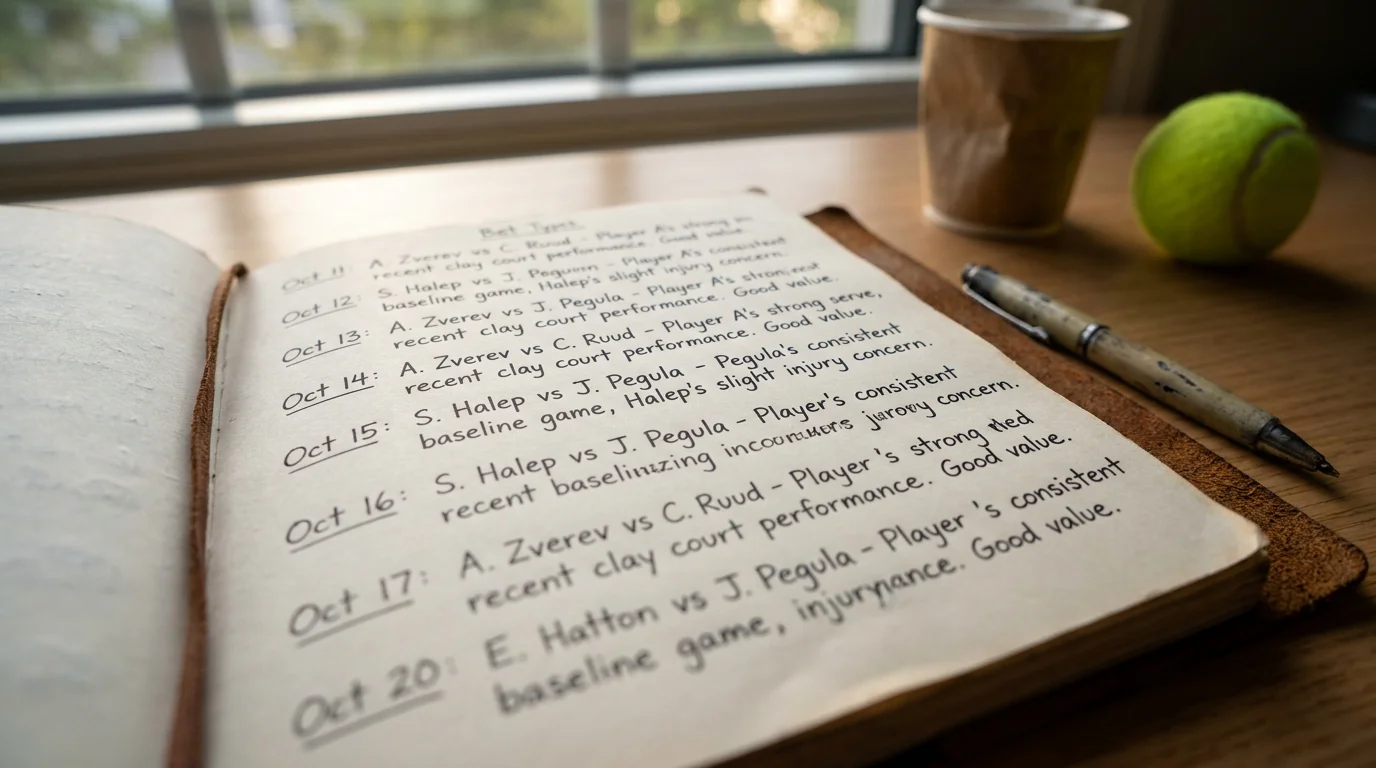 Bet Types
Oct 11: A. Zverev vs C. Ruud - Player A's strong
recent clay court performance. Good value.
Oct 12: S. Halep vs J. - Player A's consistent
baseline game, Halep's slight injury concern.
Oct 13: A. Zverev vs J. Pegula - Player A's
recent clay court performance. Good value.
Oct 14: A. Zverev vs C. Ruud - Player A's strong serve,
recent clay court performance. Good value.
Oct 15: S. Halep vs J. Pegula - Pegula's consistent
baseline game, Halep's slight injury concern.
Oct 16: S. Halep vs J. Pegula - Player's consistent
recent concern.
Oct 17: A. Zverev vs C. Ruud - Player's strong
recent clay court performance. Good value.
Oct 20: E. Hatton vs J. Pegula - Player's consistent
baseline game, Good value.